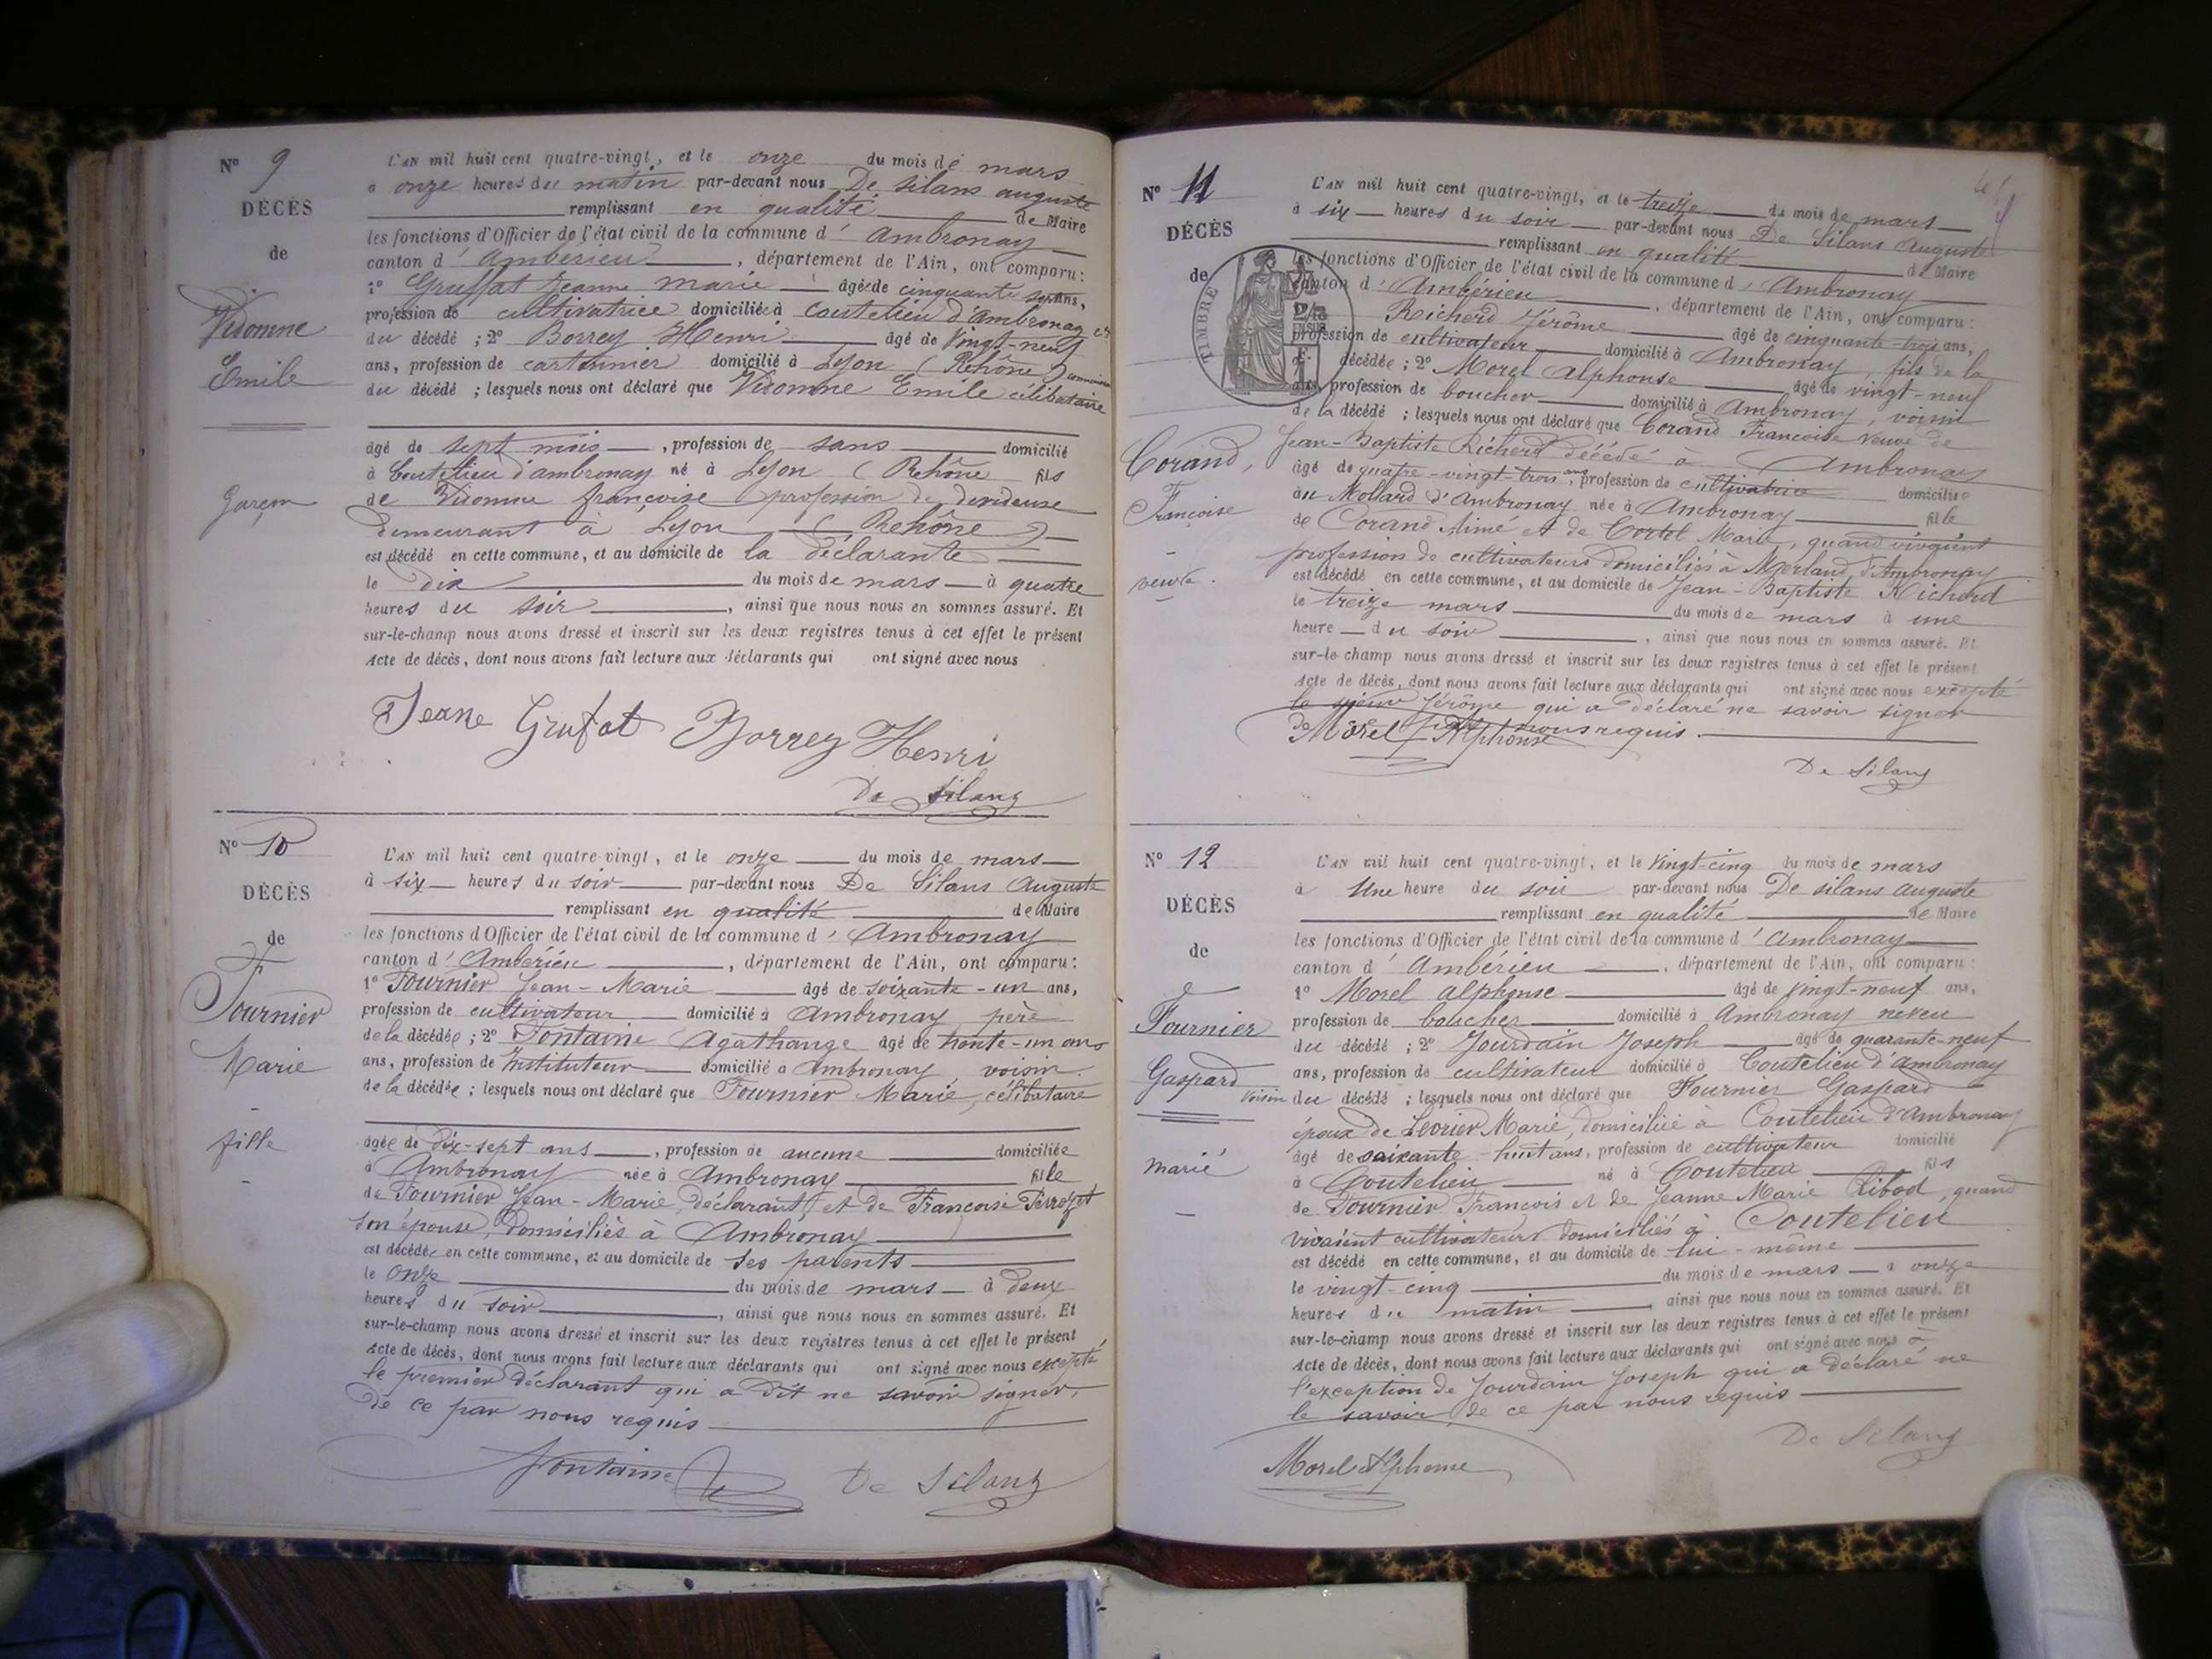 N° 9
DÉCÈS
de
Vidonne
Emile
Garçon
L'AN mil huit cent quatre-vingt, et le onze du mois de mars
a onze heures du matin par-devant nous De Silans auguste
remplissant en qualité de Maire
les fonctions d'Officier de l'état civil de la commune d' Ambronay
canton d' Amberieu, département de l'Ain, ont comparu:
1° Gruffat Jeanne marie âgée de cinquante sept ans,
profession de cultivatrice domiciliée à Coutelieu d'ambronay
du décédé ; 2° Borrey Henri âgé de Vingt-neuf
ans, profession de cartonnier domicilié à Lyon (Rehône)
du décédé ; lesquels nous ont déclaré que Vidonne Emile célibataire
âgé de sept mois, profession de sans domicilié
à Coutelieu d'ambronay né à Lyon (Rehône fils
de Vidonne françoise profession de devideuse
demeurant à Lyon (Rehône)
est décédé en cette commune, et au domicile de la déclarante
le dix du mois de mars à quatre
heures du soir, ainsi que nous nous en sommes assuré. Et
sur-le-champ nous avons dressé et inscrit sur les deux registres tenus à cet effet le présent
Acte de décès, dont nous avons fait lecture aux déclarants qui ont signé avec nous
Jeane Grufat Borrey Henri
De Silans
N° 10
DÉCÈS
de
Fournier
Marie
fille
L'AN mil huit cent quatre-vingt, et le onze du mois de mars
à six heures du soir par-devant nous De Silans Auguste
remplissant en qualité de Maire
les fonctions d'Officier de l'état civil de la commune d' Ambronay
canton d' Ambérieu, département de l'Ain, ont comparu:
1° Fournier Jean-Marie âgé de soixante-un ans,
profession de cultivateur domicilié à Ambronay père
de la décédée ; 2° Fontaine Agathange âgé de trente-un ans
ans, profession de Instituteur domicilié a Ambronay, voisin
de la décédée ; lesquels nous ont déclaré que Fournier Marie, célibataire
âgée de dix-sept ans, profession de aucune domiciliée
à Ambronay née à Ambronay fille
de Fournier Jean-Marie, déclarant, et de Françoise Perrozet
son épouse, domiciliés à Ambronay
est décédée en cette commune, et au domicile de ses parents
le onze du mois de mars à deux
heures du soir, ainsi que nous nous en sommes assuré. Et
sur-le-champ nous avons dressé et inscrit sur les deux registres tenus à cet effet le présent
Acte de décès, dont nous avons fait lecture aux déclarants qui ont signé avec nous excepté
le premier déclarant qui a dit ne savoir signer,
de ce par nous requis
Fontaine De Silans
N° 11
DÉCÈS
de
TIMBRE
Corand,
Françoise
veuve.
L'AN mil huit cent quatre-vingt, et le treize du mois de mars
à six heures du soir par-devant nous De Silans Auguste
remplissant en qualité de Maire
les fonctions d'Officier de l'état civil de la commune d' Ambronay
canton d' Ambérieu, département de l'Ain, ont comparu:
Richerd Jérôme âgé de cinquante-trois ans,
profession de cultivateur domicilié à Ambronay, fils de la
décédée ; 2° Morel Alphonse âgé de vingt-neuf
ans, profession de boucher domicilié à Ambronay, voisin
de la décédé ; lesquels nous ont déclaré que Corand Françoise veuve de
Jean-Baptiste Richerd décédé à Ambronay
âgé de quatre-vingt-trois ans, profession de cultivatrice domicilié
au Mollard d'Ambronay née à Ambronay fille
de Corand Aimé et de Cortel Marie, quand vivaient
profession de cultivateurs domiciliés à Merland, d'Ambronay
est décédé en cette commune, et au domicile de Jean-Baptiste Richerd
le treize mars du mois de mars à une
heure du soir, ainsi que nous nous en sommes assuré. Et
sur-le-champ nous avons dressé et inscrit sur les deux registres tenus à cet effet le présent
Acte de décès, dont nous avons fait lecture aux déclarants qui ont signé avec nous excepté
le sieur Jérôme qui a déclaré ne savoir signer
de ce par nous requis.
Morel Alphonse
De Silans
N° 12
DÉCÈS
de
Fournier
Gaspard
marié
L'AN mil huit cent quatre-vingt, et le Vingt-cinq du mois de mars
à Une heure du soir par-devant nous De silans auguste
remplissant en qualité de Maire
les fonctions d'Officier de l'état civil de la commune d' Ambronay
canton d' Ambérieu, département de l'Ain, ont comparu:
1° Morel alphonse âgé de vingt-neuf ans,
profession de boucher domicilié à Ambronay neveu
du décédé ; 2° Jourdain Joseph âgé de quarante-neuf
ans, profession de cultivateur domicilié à Coutelieu d'ambronay
voisin du décédé ; lesquels nous ont déclaré que Fournier Gaspard
époux de Levrier Marie, domiciliée à Coutelieu d'Ambronay
âgé de soixante-huit ans, profession de cultivateur domicilié
à Coutelieu né à Coutelieu fils
de Fournier François et de Jeanne Marie Ribod, quand
vivaient cultivateurs domiciliés à Coutelieu
est décédé en cette commune, et au domicile de lui-même
le vingt-cinq du mois de mars à onze
heures du matin, ainsi que nous nous en sommes assuré. Et
sur-le-champ nous avons dressé et inscrit sur les deux registres tenus à cet effet le présent
Acte de décès, dont nous avons fait lecture aux déclarants qui ont signé avec nous à
l'exception de Jourdain Joseph qui a déclaré ne
le savoir, de ce par nous requis
De Silans
Morel Alphonse